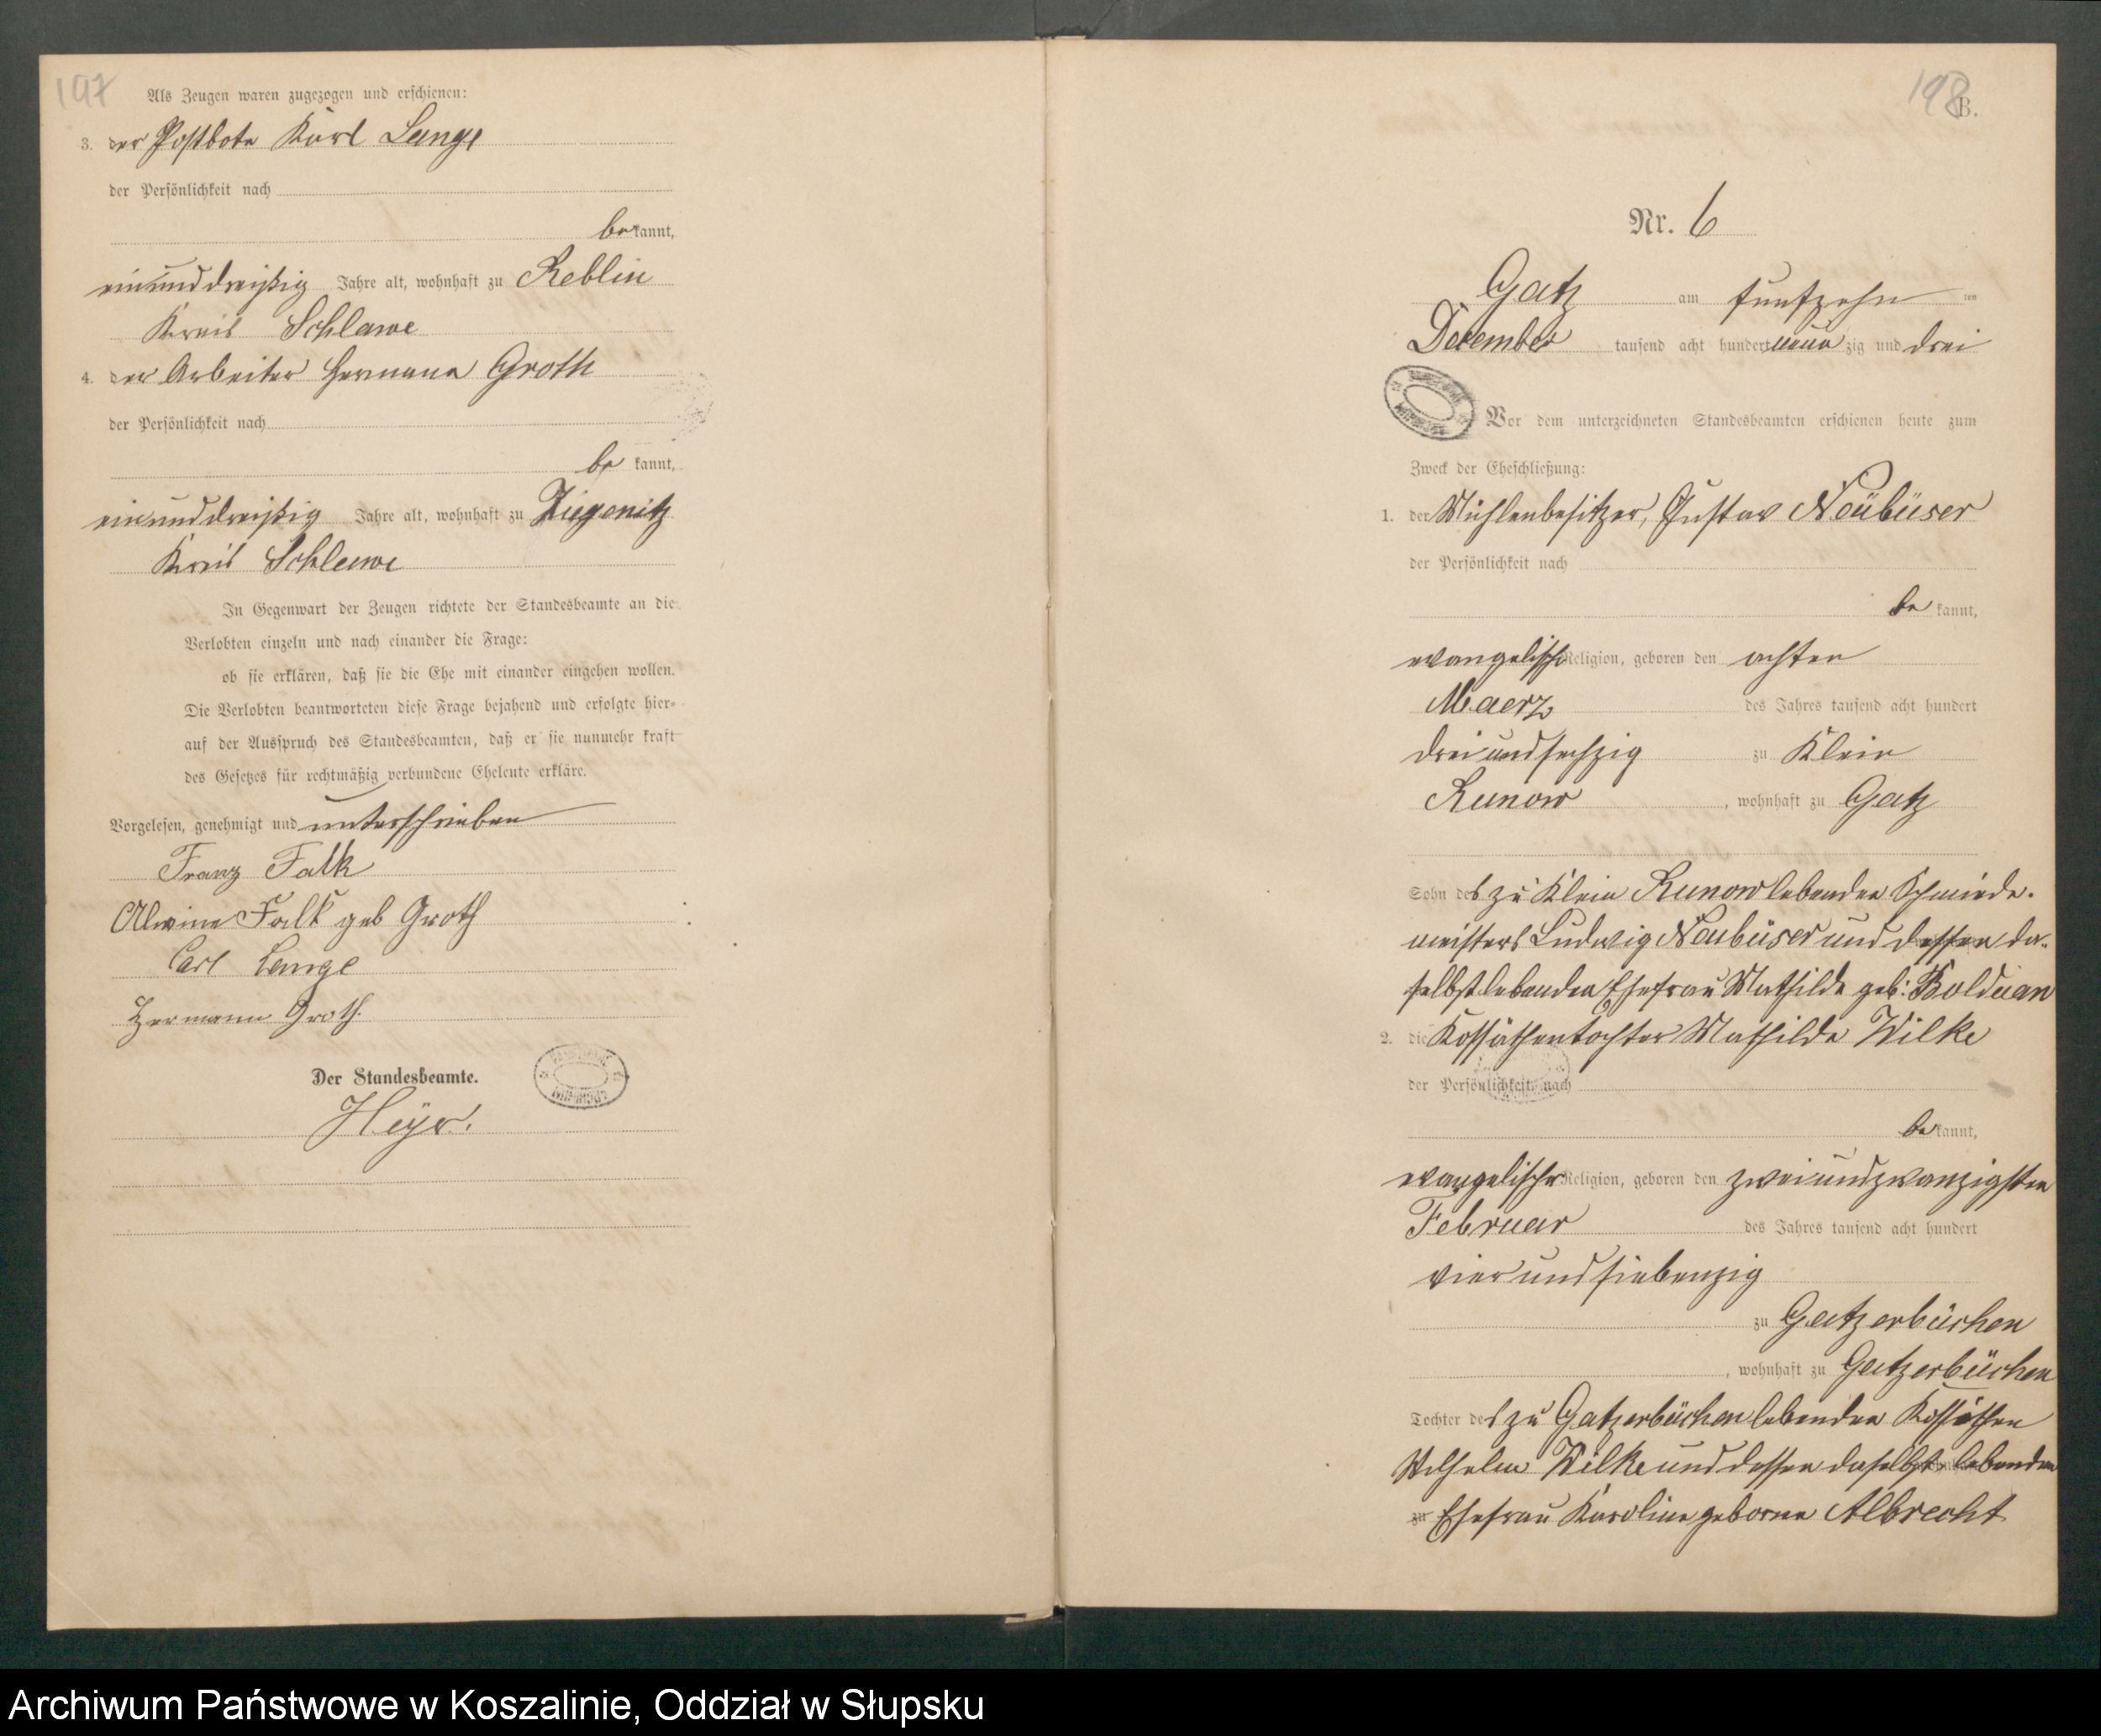 197
Als Zeugen waren zugezogen und erschienen:
3. der Postbote Karl Lange
der Persönlichkeit nach
bekannt,
einunddreißig Jahre alt, wohnhaft zu Reblin
Kreis Schlawe
4. der Arbeiter Hermann Groth
der Persönlichkeit nach
bekannt,
einunddreißig Jahre alt, wohnhaft zu Ziegenitz
Kreis Schlawe
In Gegenwart der Zeugen richtete der Standesbeamte an die
Verlobten einzeln und nach einander die Frage:
ob sie erklären, daß sie die Ehe mit einander eingehen wollen.
Die Verlobten beantworteten diese Frage bejahend und erfolgte hier-
auf der Ausspruch des Standesbeamten, daß er sie nunmehr kraft
des Gesetzes für rechtmäßig verbundene Eheleute erkläre.
Vorgelesen, genehmigt und unterschrieben
Franz Falk
Alwine Falk geb Groth
Carl Lange
Hermann Groth.
Der Standesbeamte.
Heyer.
198
B.
Nr. 6
Gatz am funfzehn ten
December tausend acht hundert neunzig und drei
Vor dem unterzeichneten Standesbeamten erschienen heute zum
Zweck der Eheschließung:
1. der Mühlenbesitzer, Gustav Neubüser
der Persönlichkeit nach
bekannt,
evangelischer Religion, geboren den achten
Maerz des Jahres tausend acht hundert
drei und sechzig zu Klein
Runow, wohnhaft zu Gatz
Sohn des zu Klein Runow lebenden Schmiede-
meisters Ludwig Neubüser und dessen da-
selbst lebenden Ehefrau Mathilde geb: Bolduan
2. die Kossäthentochter Mathilde Wilke
der Persönlichkeit nach
bekannt,
evangelischer Religion, geboren den zweiundzwanzigsten
Februar des Jahres tausend acht hundert
vier und siebenzig
zu Gatzerbüchen
, wohnhaft zu Gatzerbüchen
Tochter des zu Gatzerbüchen lebenden Kossäthen
Wilhelm Wilke und dessen daselbst lebenden
zu Ehefrau Karoline geborne Albrecht
Archiwum Państwowe w Koszalinie, Oddział w Słupsku